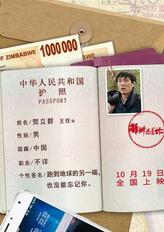 ZIMBABWE
1000000
中华人民共和国
护照
PASSPORT
姓名/贺立群
性别/男
国籍/中国
职业/不详
个性签名/跑到地球的另一端,
也没能忘记你。
10月19日
全国上映